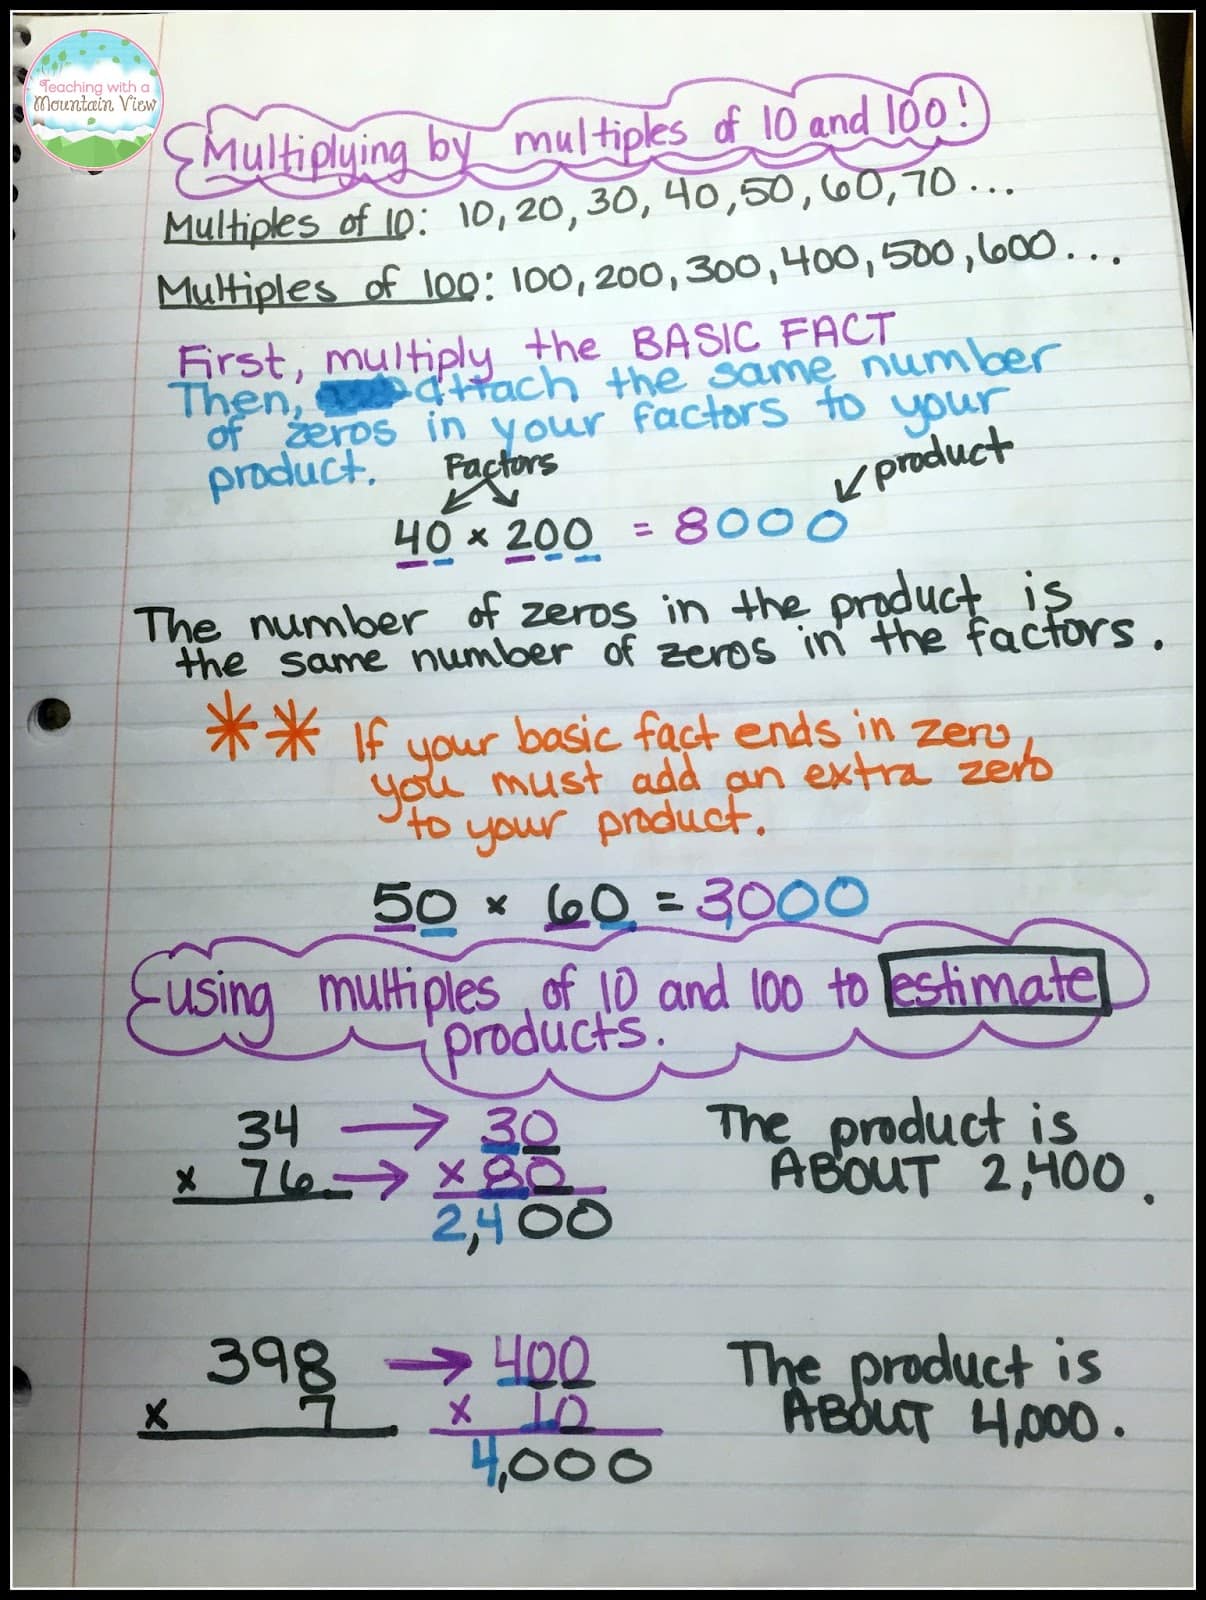 Teaching with a
Mountain View
Multiplying by multiples of 10 and 100!
Multiples of 10: 10, 20, 30, 40, 50, 60, 70...
Multiples of 100: 100, 200, 300, 400, 500, 600...
First, multiply the BASIC FACT
Then, attach the same number
of zeros in your factors to your
product.
Factors
product
40 × 200 = 8000
The number of zeros in the product is
the same number of zeros in the factors.
** If your basic fact ends in zero,
you must add an extra zero
to your product.
50 × 60 = 3,000
using multiples of 10 and 100 to estimate
products.
34 → 30
× 76 → × 80
2,400
The product is
ABOUT 2,400.
398 → 400
× 7 × 10
4,000
The product is
ABOUT 4,000.